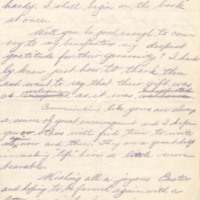 handy. I shall begin on the book
at once.
Will you be good enough to con-
vey to my benefactors my deepest
gratitude for their generosity? I hardly
know just how to thank them
and would say that their gift was
as as it was unexpected
Communications like yours are always
a source of great encouragement and I hope
you all will find time to write
again, now and then. They are a great help
in making life here a little more
bearable.
Wishing all a joyous Easter
and hoping to be favored again with a